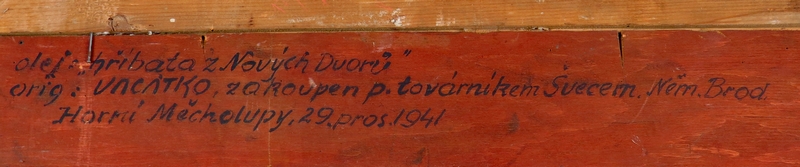 "olej: hříbata z Nových Dvorů"
orig: VACÁTKO, zakoupen p. továrníkem Švecem, Něm. Brod
Horní Měcholupy, 29. pros. 1941